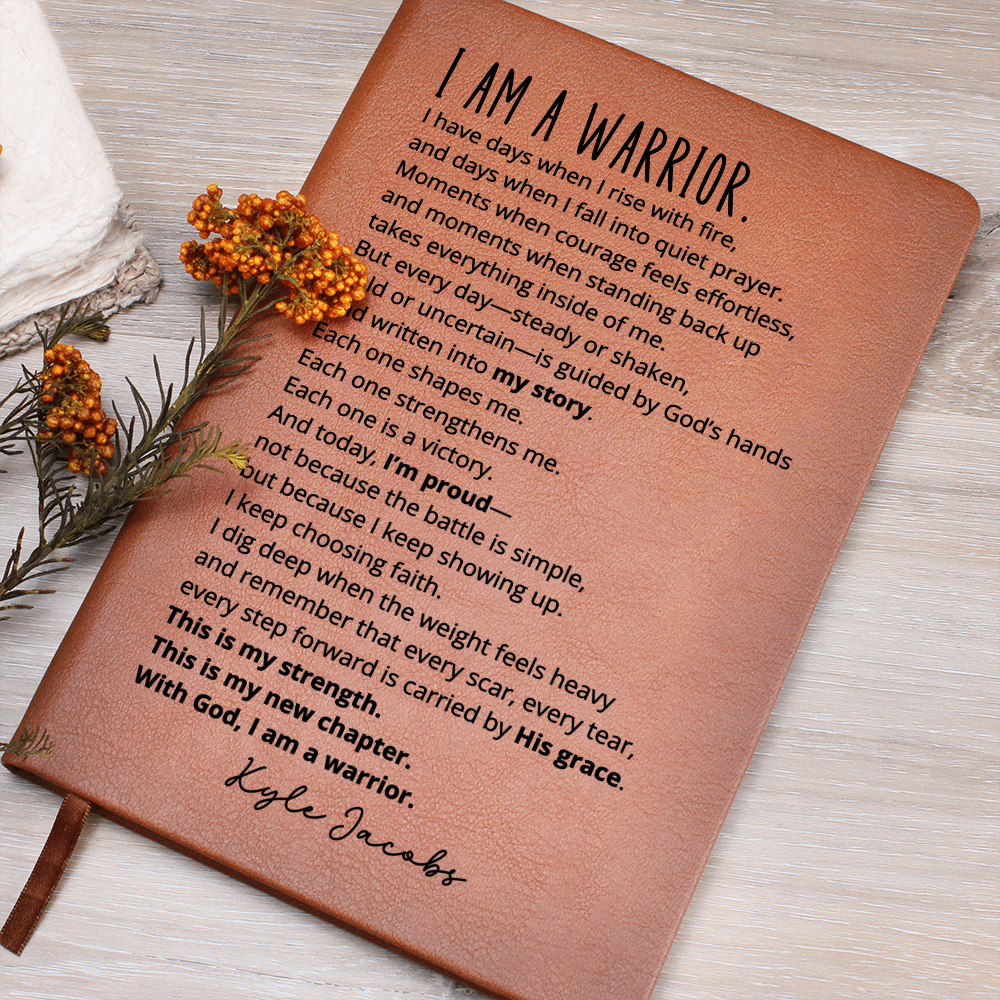 I AM A WARRIOR.
I have days when I rise with fire,
and days when I fall into quiet prayer.
Moments when courage feels effortless,
and moments when standing back up
takes everything inside of me.
But every day—steady or shaken,
or uncertain—is guided by God's hands
written into my story.
Each one shapes me.
Each one strengthens me.
Each one is a victory.
And today, I'm proud—
not because the battle is simple,
but because I keep showing up.
I keep choosing faith.
I dig deep when the weight feels heavy
and remember that every scar, every tear,
every step forward is carried by His grace.
This is my strength.
This is my new chapter.
With God, I am a warrior.
Kyle Jacobs